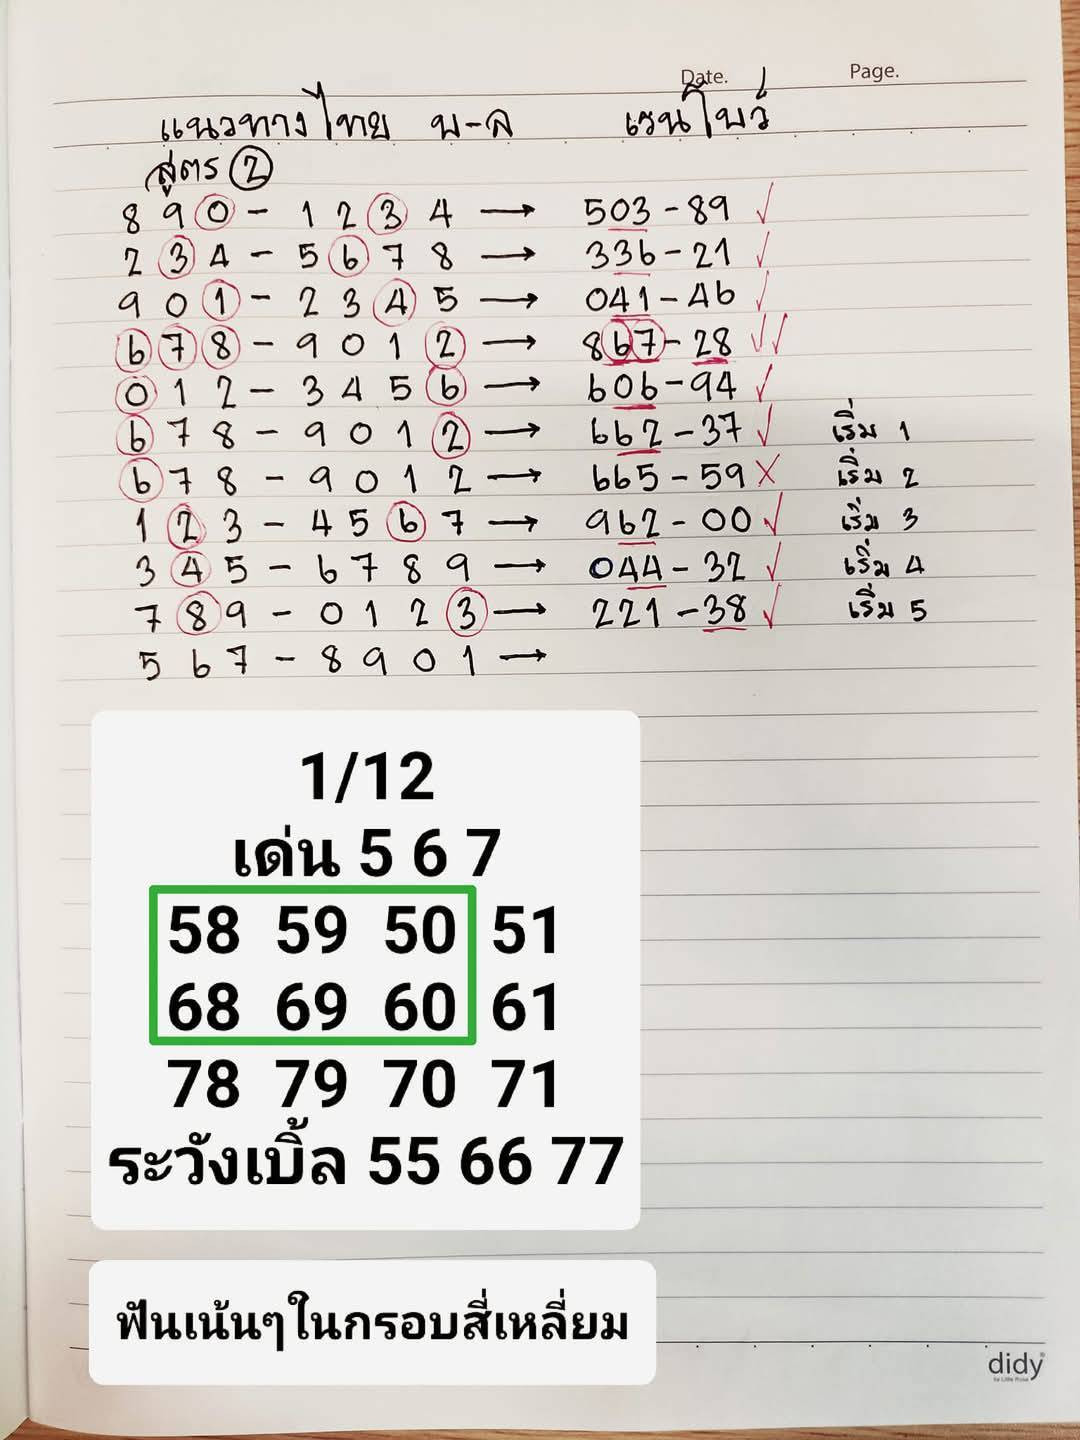 Date. Page.
แนวทางไทย บ-ล เรนโบว์
สูตร 2
8 9 0 - 1 2 3 4 → 503 - 89 ✓
2 3 4 - 5 6 7 8 → 336 - 21 ✓
9 0 1 - 2 3 4 5 → 041 - 46 ✓
6 7 8 - 9 0 1 2 → 867 - 28 ✓✓
0 1 2 - 3 4 5 6 → 606 - 94 ✓
6 7 8 - 9 0 1 2 → 662 - 37 ✓ เริ่ม 1
6 7 8 - 9 0 1 2 → 665 - 59 X เริ่ม 2
1 2 3 - 4 5 6 7 → 962 - 00 ✓ เริ่ม 3
3 4 5 - 6 7 8 9 → 044 - 32 ✓ เริ่ม 4
7 8 9 - 0 1 2 3 → 221 - 38 ✓ เริ่ม 5
5 6 7 - 8 9 0 1 →
1/12
เด่น 5 6 7
58 59 50 51
68 69 60 61
78 79 70 71
ระวังเบิ้ล 55 66 77
ฟันเน้นๆในกรอบสี่เหลี่ยม
didy